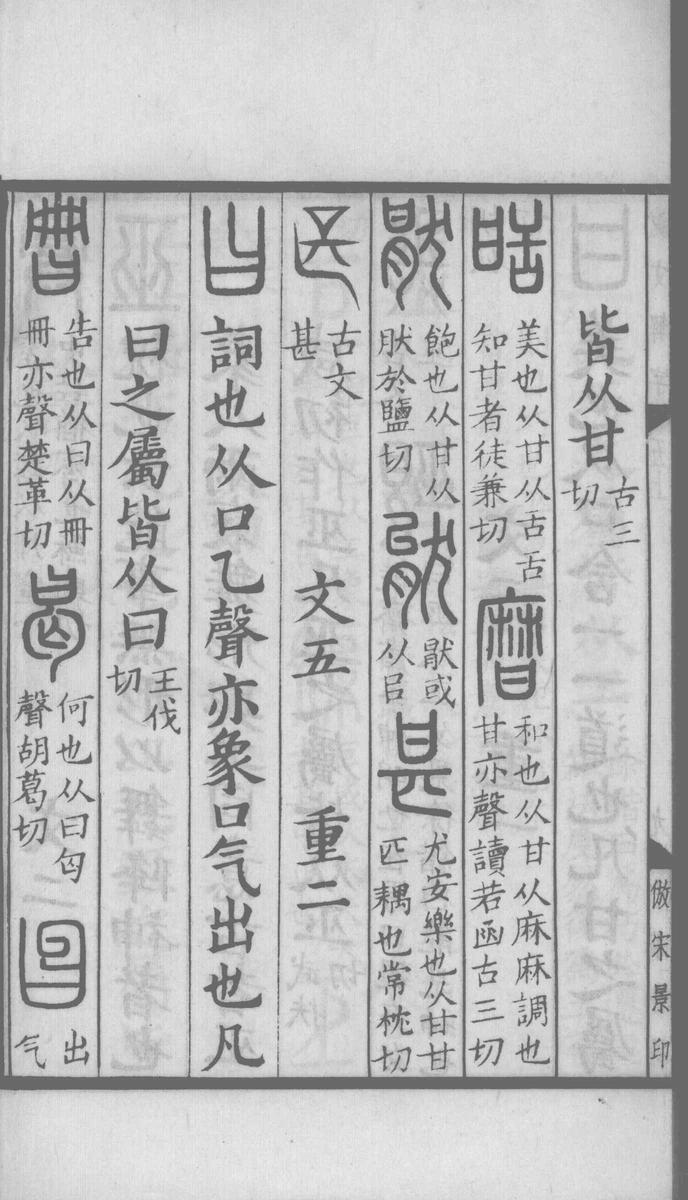 皆从甘古三切
𤯍美也从甘从舌舌知甘者徒兼切𤯌和也从甘从麻麻調也甘亦聲讀若函古三切
猒飽也从甘从肰於鹽切𤟙猒或从㠯甚尤安樂也从甘甘匹耦也常枕切
古文甚 文五 重二
曰詞也从口乙聲亦象口气出也凡
曰之屬皆从曰王伐切
𠕋告也从曰从冊冊亦聲楚革切曷何也从曰匃聲胡葛切曶出气
倣宋景印